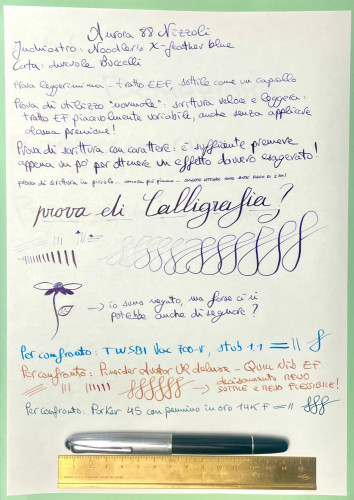 Aurora 88 Nizzoli
Inchiostro: Noodler's X-feather blue
Carta: durevole Boscelli
Prova leggerissima - tratto EEF, sottile come un capello
Prova di utilizzo "normale": scrittura veloce e leggera:
tratto EF piacevolmente variabile, anche senza applicare
alcuna pressione!
Prova di scrittura con carattere: è sufficiente premere
appena un po' per ottenere un effetto davvero esagerato!
prova di scrittura in piccolo... ancora più piccolo...
prova di Calligrafia?
→ io sono negato, ma forse ci si
potrebbe anche disegnare?
Per confronto: TWSBI Vac 700-R, stub 1.1
Per confronto: Pineider Avatar UR deluxe - Quill nib EF
→ decisamente MENO
SOTTILE e MENO FLESSIBILE!
Per confronto: Parker 45 con pennino in oro 14K F